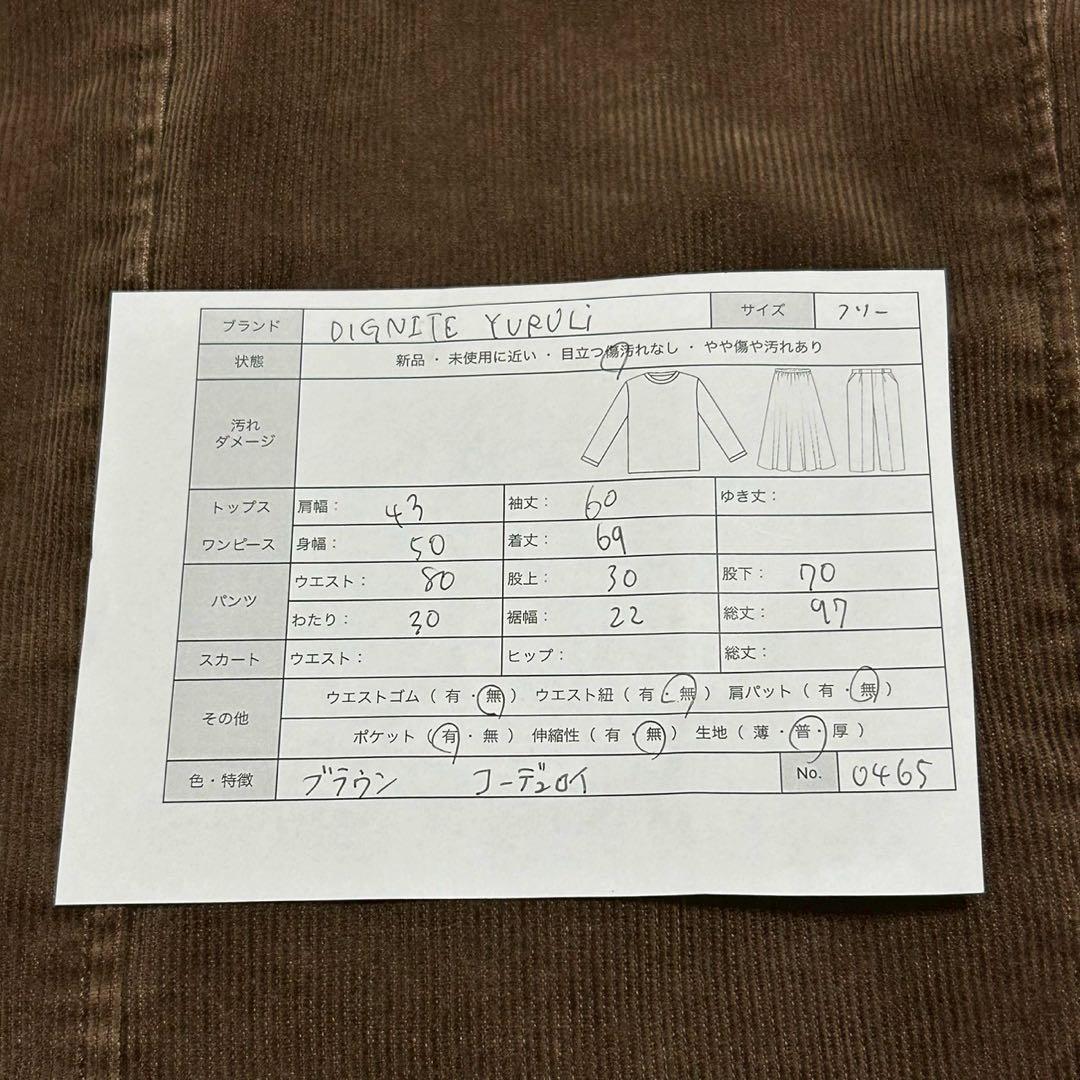 ブランド DIGNITE YURULi サイズ フリー
状態 新品 ・ 未使用に近い ・ 目立つ傷汚れなし ・ やや傷や汚れあり
汚れ
ダメージ
トップス 肩幅： 43 袖丈： 60 ゆき丈：
ワンピース 身幅： 50 着丈： 69
パンツ ウエスト： 80 股上： 30 股下： 70
わたり： 30 裾幅： 22 総丈： 97
スカート ウエスト： ヒップ： 総丈：
その他 ウエストゴム（ 有 ・ 無 ） ウエスト紐（ 有 ・ 無 ） 肩パット（ 有 ・ 無 ）
ポケット（ 有 ・ 無 ） 伸縮性（ 有 ・ 無 ） 生地（ 薄 ・ 普 ・ 厚 ）
色・特徴 ブラウン コーデュロイ No. 0465